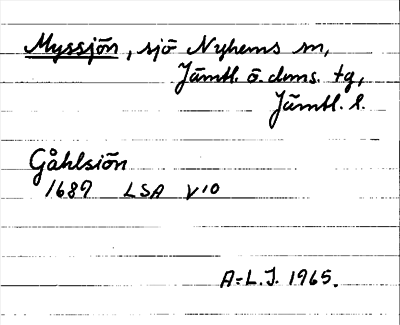 Myssjön, sjö Nyhems sn,
Jämtl. ö. dms. tg,
Jämtl. l.
Gåhlsiön
1689 LSA V10
A-L.J. 1965.